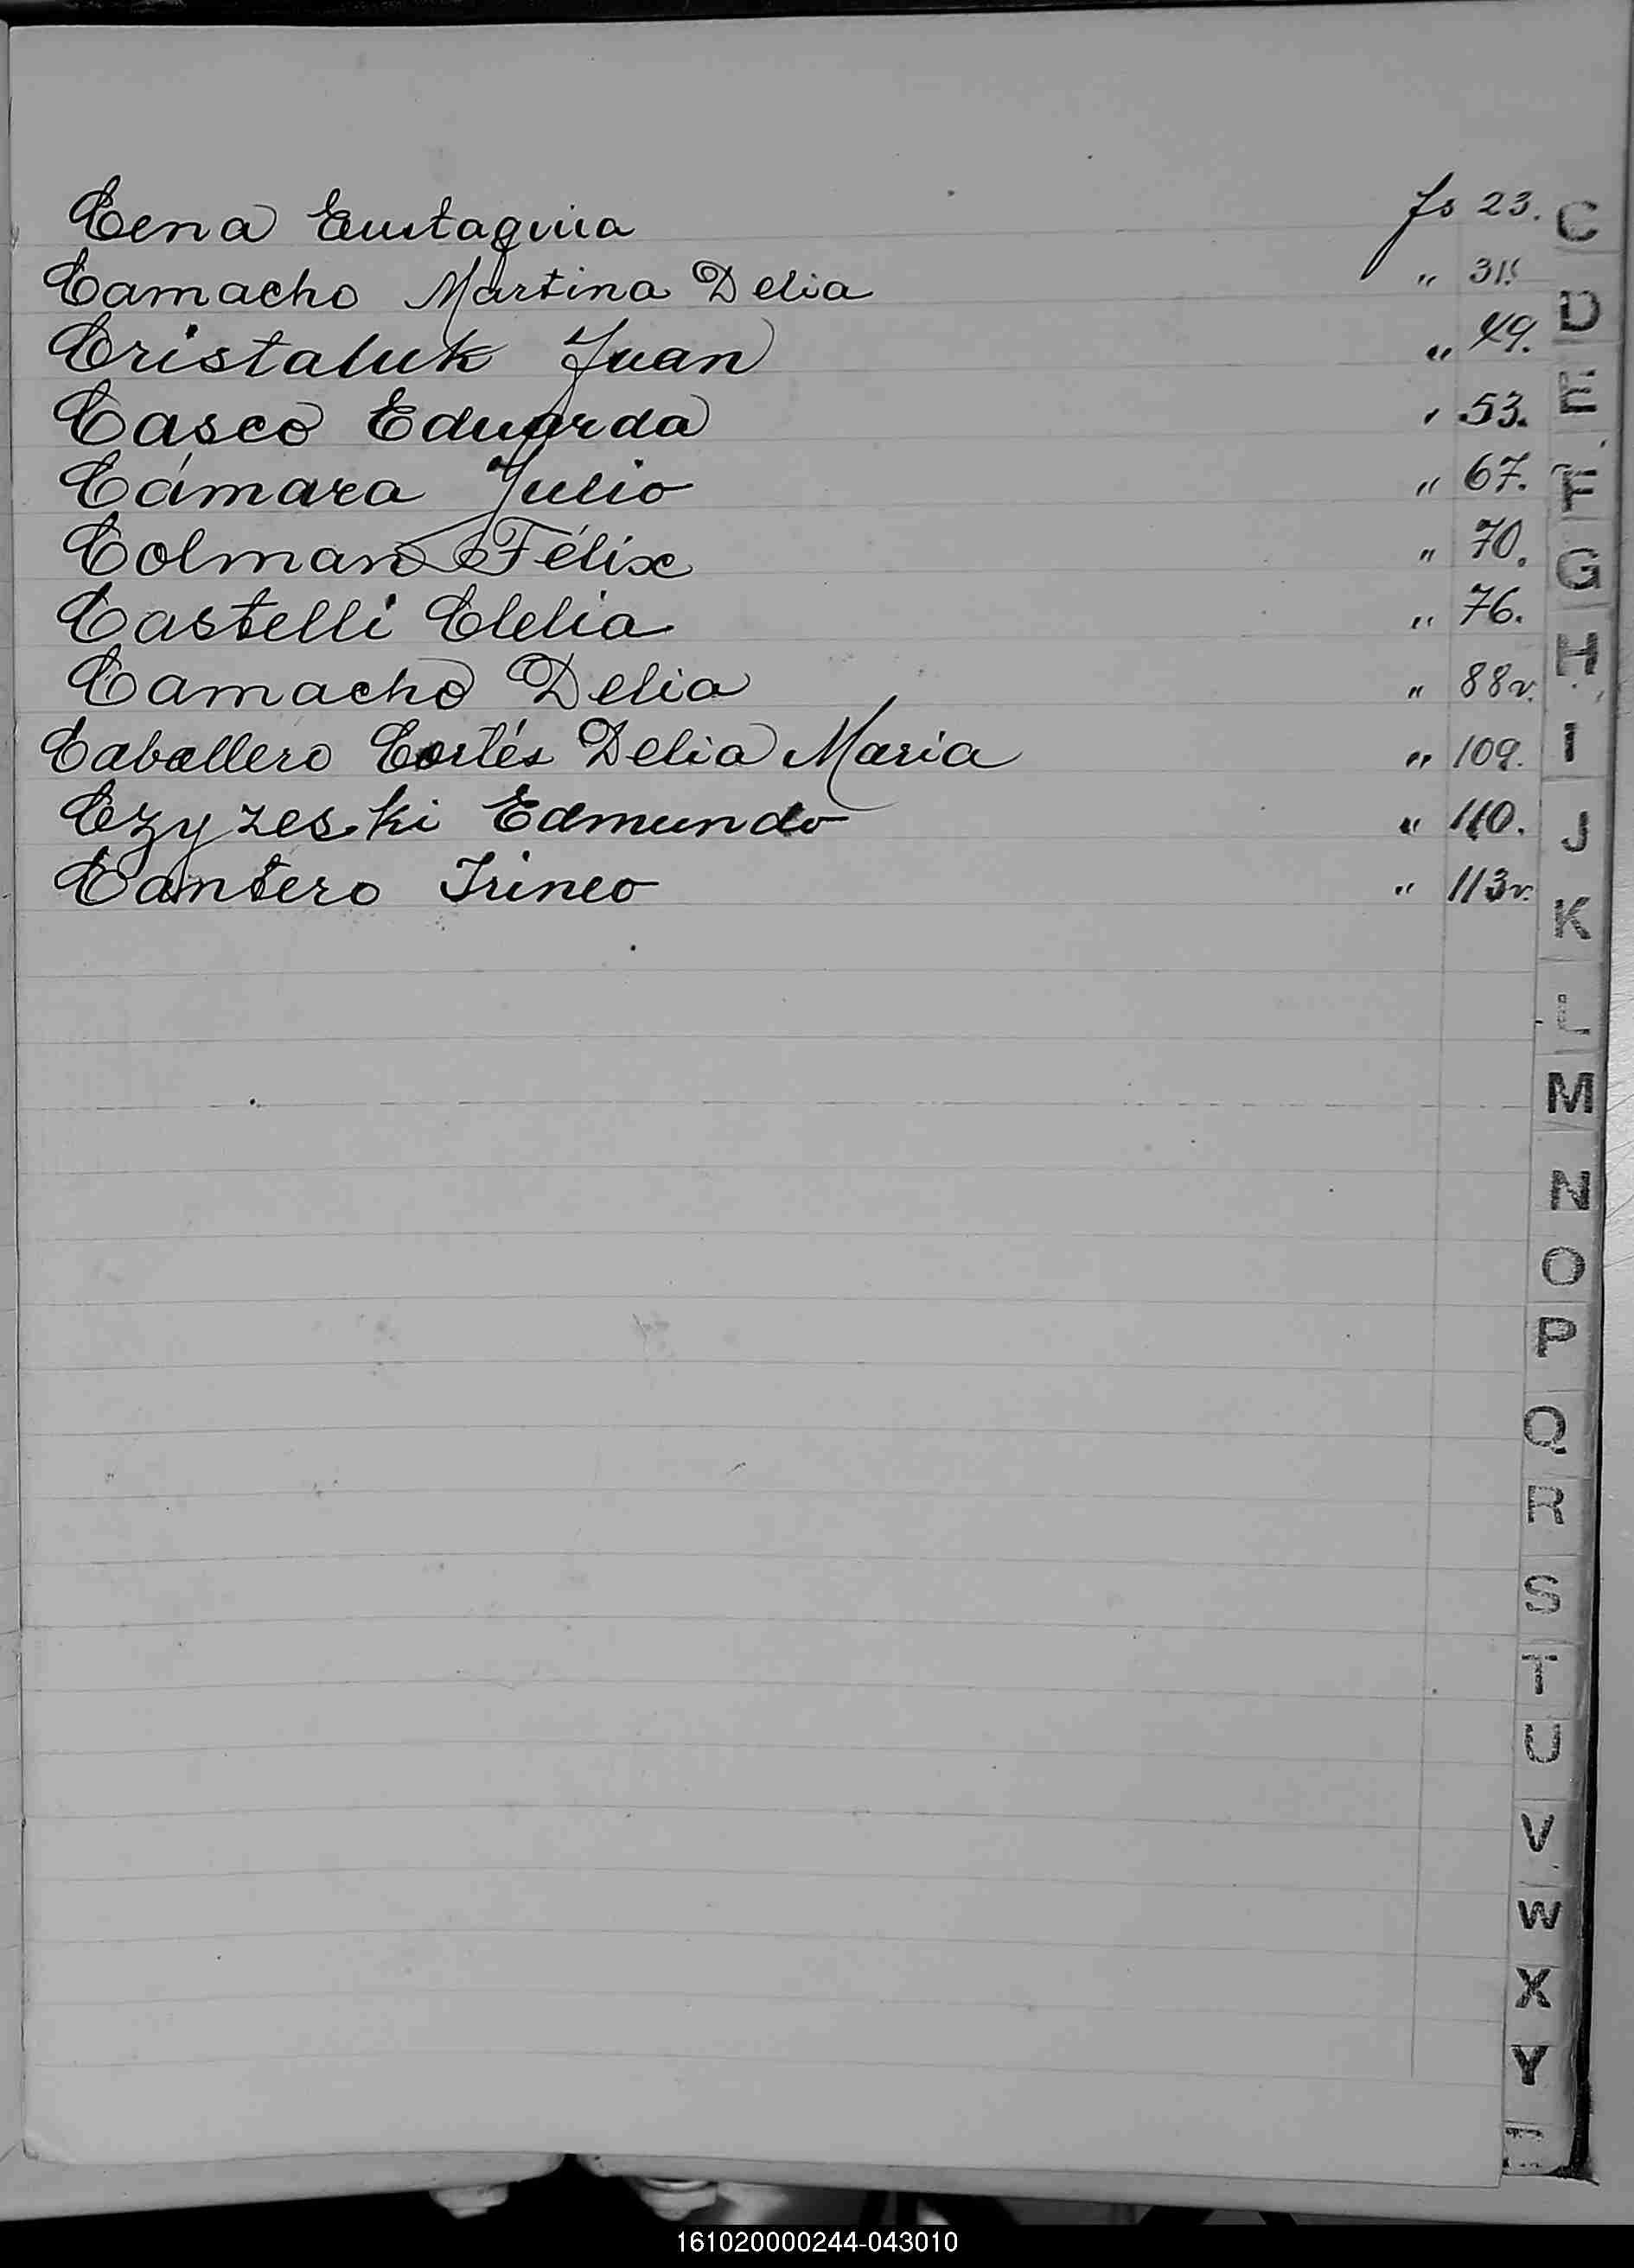 Cena Eustaquia fs 23.
Camacho Martina Delia " 31.
Cristaluk Juan " 49.
Casco Eduarda " 53.
Cámara Julio " 67.
Colman Félix " 70.
Castelli Clelia " 76.
Camacho Delia " 88v.
Caballero Cortés Delia Maria " 109.
Czyzeski Edmundo " 110.
Cantero Irineo " 113v.
C
D
E
F
G
H
I
J
K
L
M
N
O
P
Q
R
S
T
U
V
W
X
Y
161020000244-043010